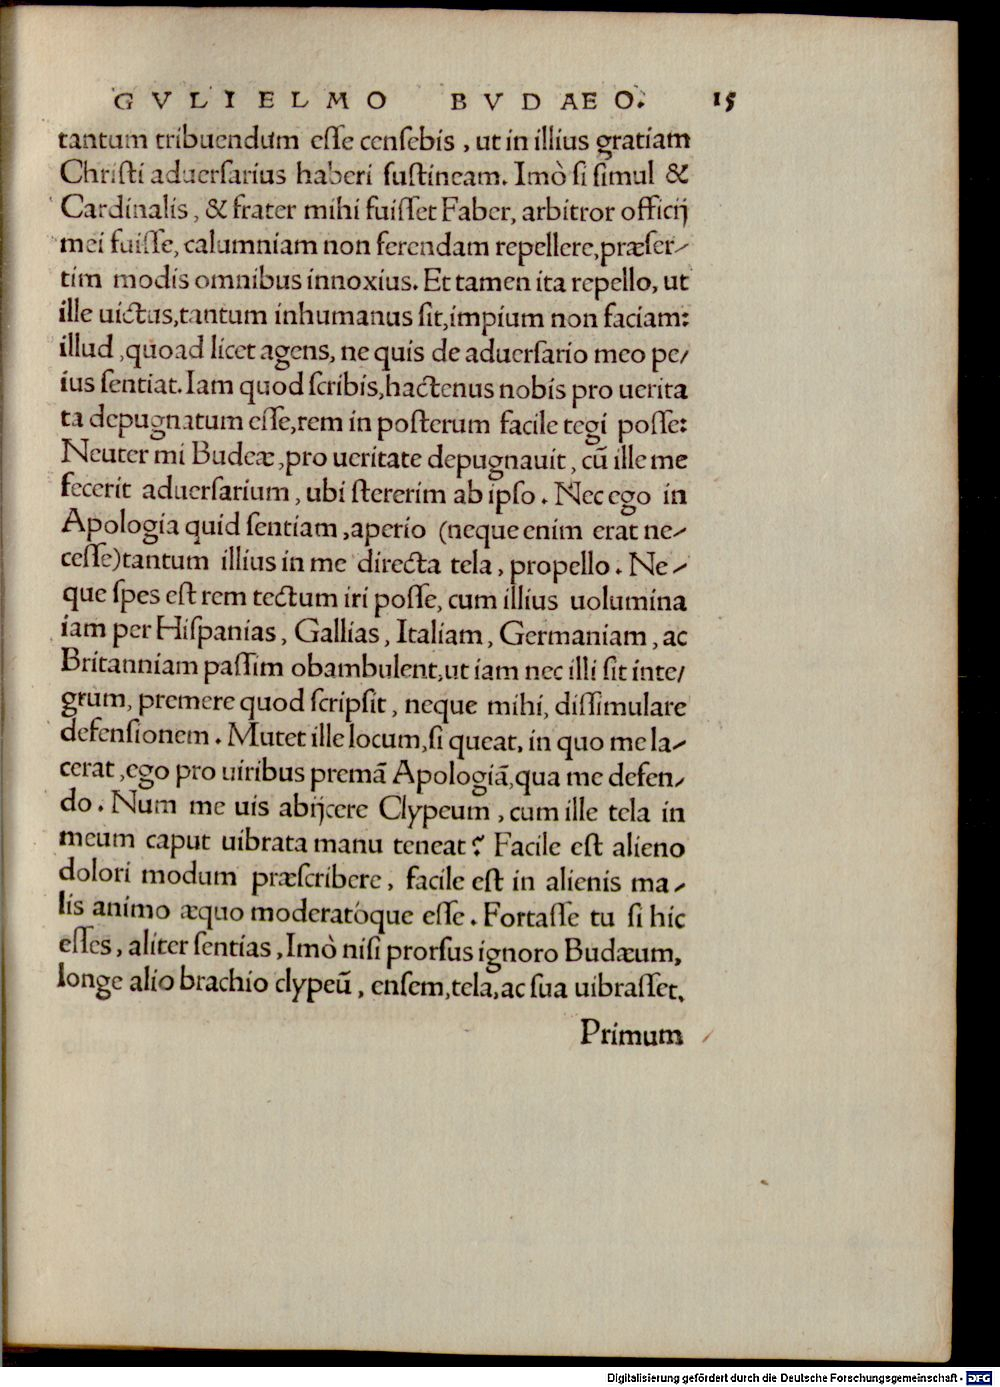 GVLIELMO BVDAEO. 15
tantum tribuendum esse censebis, ut in illius gratiam
Christi aduersarius haberi sustineam. Imò si simul &
Cardinalis, & frater mihi fuisset Faber, arbitror officij
mei fuisse, calumniam non ferendam repellere, præser-
tim modis omnibus innoxius. Et tamen ita repello, ut
ille uictus, tantum inhumanus sit, impium non faciam:
illud, quoad licet agens, ne quis de aduersario meo pe/
ius sentiat. Iam quod scribis, hactenus nobis pro uerita
ta depugnatum esse, rem in posterum facile tegi posse:
Neuter mi Budeæ, pro ueritate depugnauit, cū ille me
fecerit aduersarium, ubi stererim ab ipso. Nec ego in
Apologia quid sentiam, aperio (neque enim erat ne-
cesse) tantum illius in me directa tela, propello. Ne-
que spes est rem tectum iri posse, cum illius uolumina
iam per Hispanias, Gallias, Italiam, Germaniam, ac
Britanniam passim obambulent, ut iam nec illi sit inte/
grum, premere quod scripsit, neque mihi, dissimulare
defensionem. Mutet ille locum, si queat, in quo me la-
cerat, ego pro uiribus premā Apologiā, qua me defen-
do. Num me uis abijcere Clypeum, cum ille tela in
meum caput uibrata manu teneat? Facile est alieno
dolori modum præscribere, facile est in alienis ma-
lis animo æquo moderatóque esse. Fortasse tu si hic
esses, aliter sentias, Imò nisi prorsus ignoro Budæum,
longe alio brachio clypeū, ensem, tela, ac sua uibrasset.
Primum
Digitalisierung gefördert durch die Deutsche Forschungsgemeinschaft - DFG